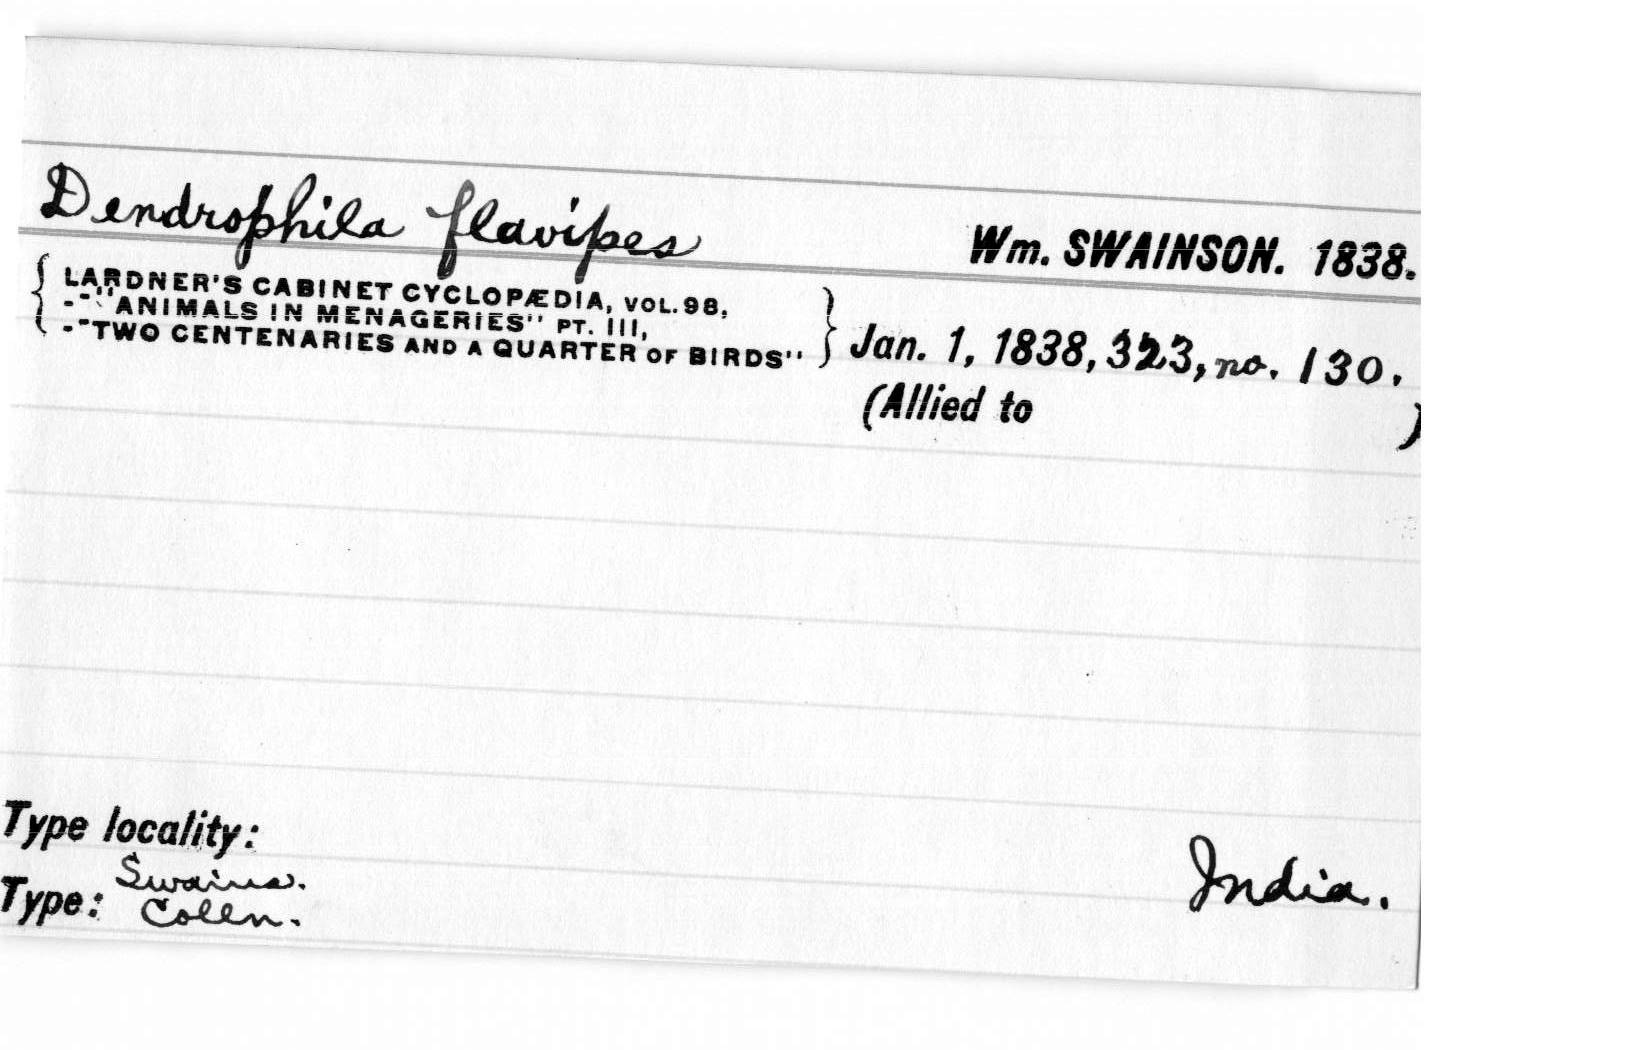 Dendrophila flavipes
Wm. SWAINSON. 1838.
{ LARDNER'S CABINET CYCLOPÆDIA, VOL. 98,
-"- "ANIMALS IN MENAGERIES" PT. III,
-"- "TWO CENTENARIES AND A QUARTER OF BIRDS" } Jan. 1, 1838, 323, no. 130.
(Allied to )
Type locality: India.
Type: Swains.
Colln.